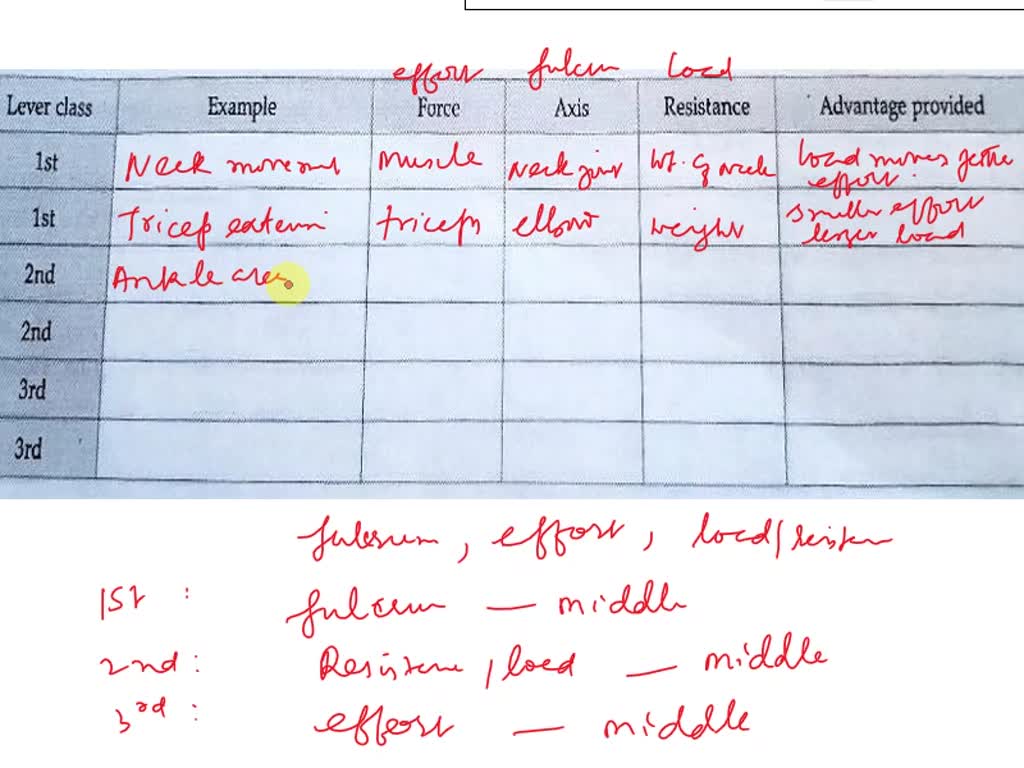 effort fulcrum load
Lever class Example Force Axis Resistance Advantage provided
1st Neck movement Muscle Neck joint Wt. of neck load moves
effort.
1st Tricep triceps elbow weight smaller effort
larger load
2nd Ankle
2nd
3rd
3rd
fulcrum, effort, load/
1st : fulcrum — middle
2nd : , load — middle
3rd : effort — middle